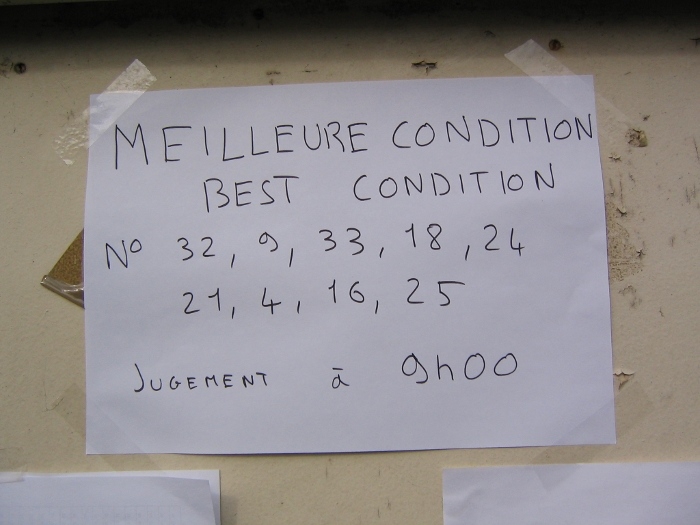 MEILLEURE CONDITION
BEST CONDITION
No 32, 9, 33, 18, 24
21, 4, 16, 25
JUGEMENT à 9h00